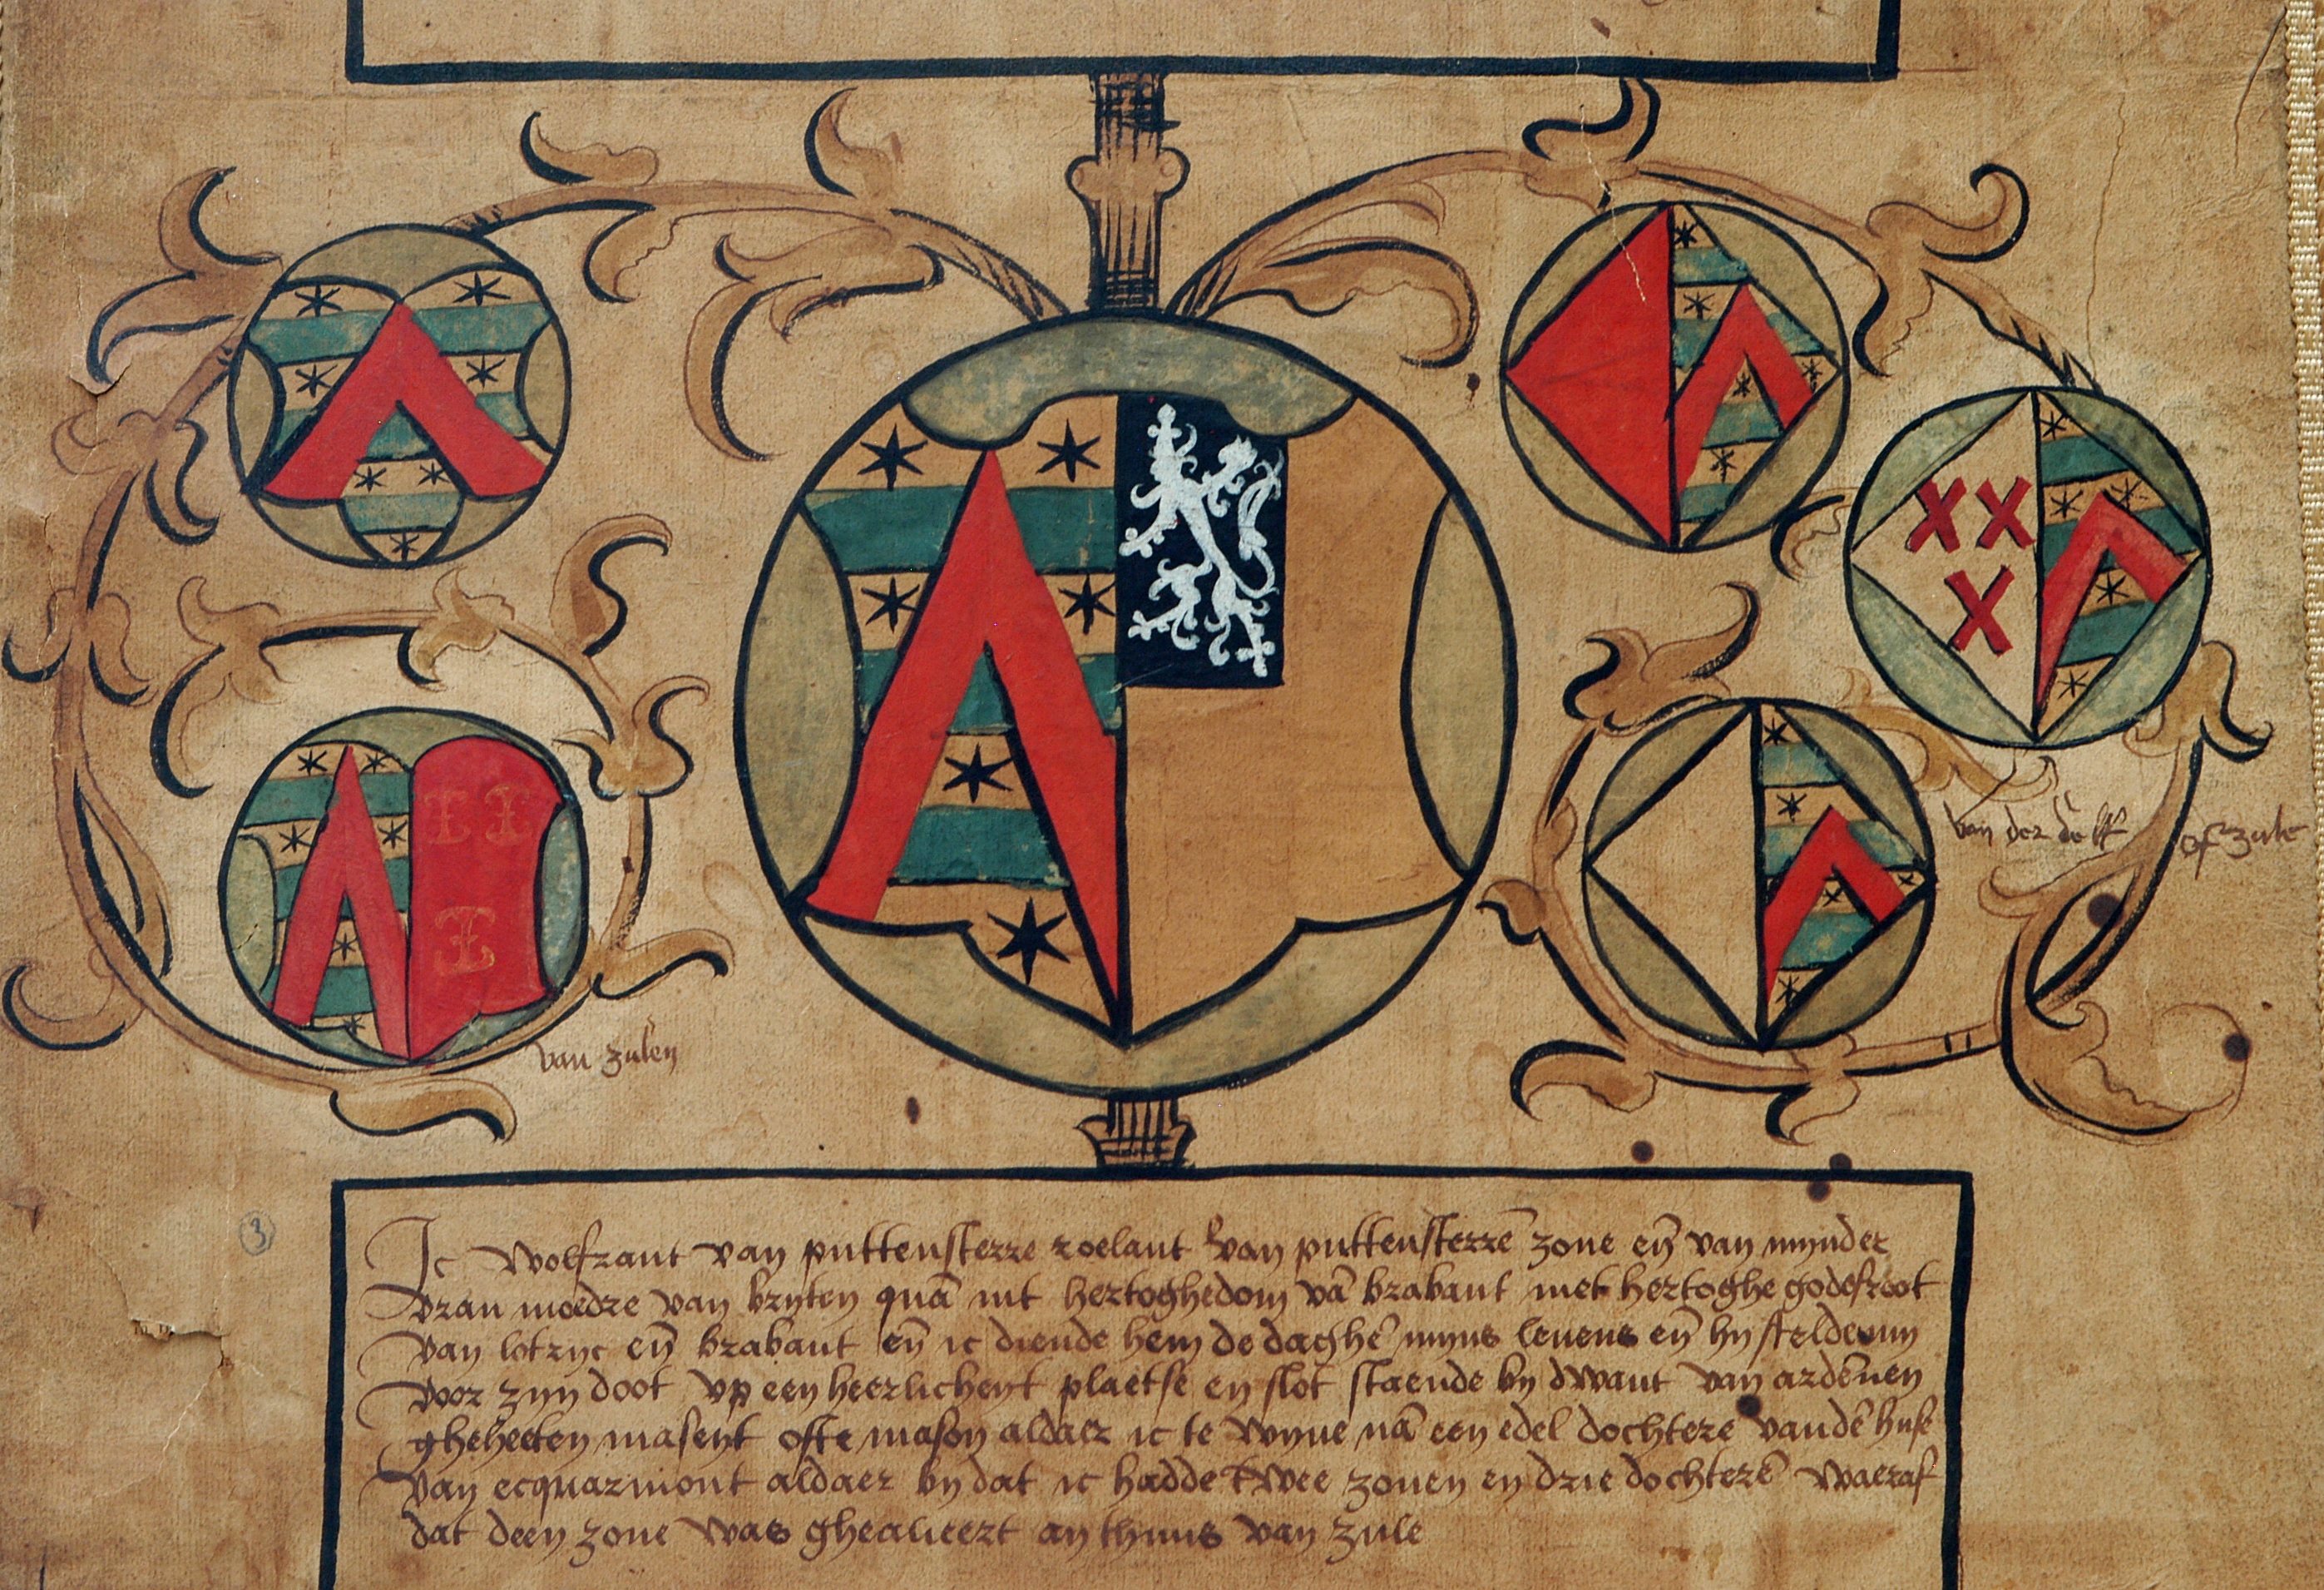 van der delft
of zule
van zulen
3
Ic wolfrant van puttensterre roelant van puttensterrē zone eñ van mynder
vrau moedre van bryten quā uut hertoghedom vā brabant met hertoghe godefroot
van lotryc eñ brabant eñ ic diende hem de daghē myns levens eñ hy stelde my
voor zyn doot up een heerlicheyt plaetse en slot staende by dwant van ardēnen
gheheeten maseyt ofte mason aldaer ic te wyve nā een edel dochtere vandē huse
van ecquarmont aldaer by dat ic hadde twee zonen en drie dochterē waeraf
dat deen zone was gheallieert an thuus van zule